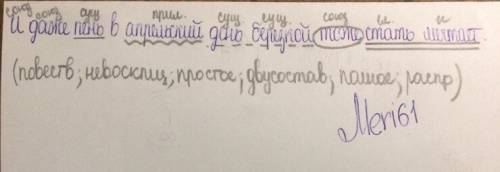 союз союз сущ. прил. сущ. сущ. союз
И даже пень в апрельский день берёзкой тоже стать мечтает.
(повеств; невосклиц; простое; двусостав; полное; распр)
Meri61